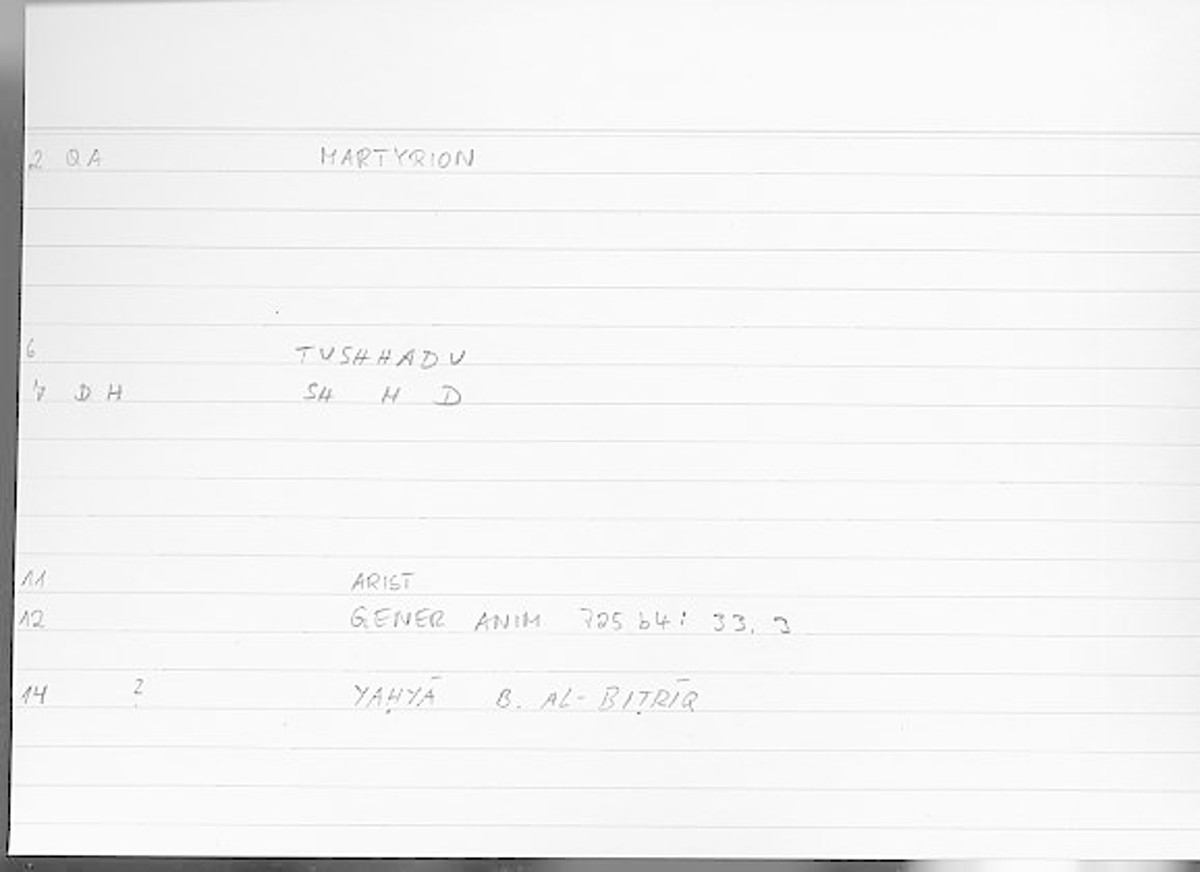 2 QA MARTYRION
6 TUSHHADU
7 DH SH H D
11 ARIST
12 GENER ANIM 725 b4: 33, 3
14 ? YAḤYĀ B. AL-BIṬRĪQ